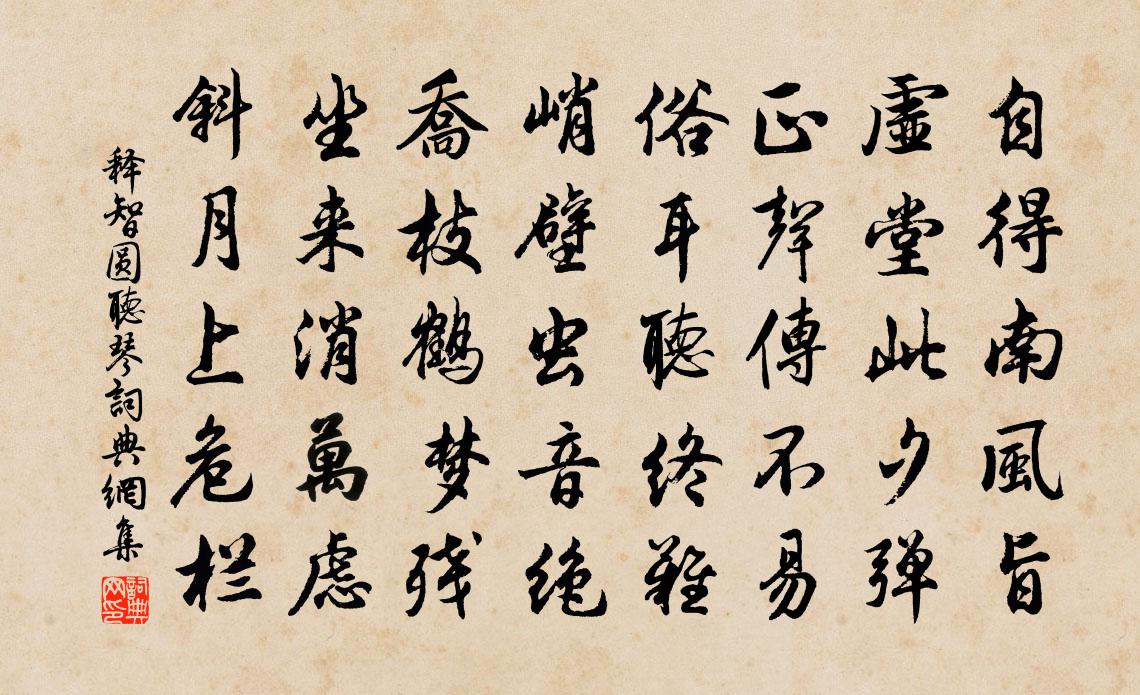 自得南風旨
虛堂此夕弹
正聲傳不易
俗耳聽终難
峭壁虫音绝
喬枝鶴梦残
坐来消萬虑
斜月上危栏
释智圆聽琴詞典網集
詞典网印